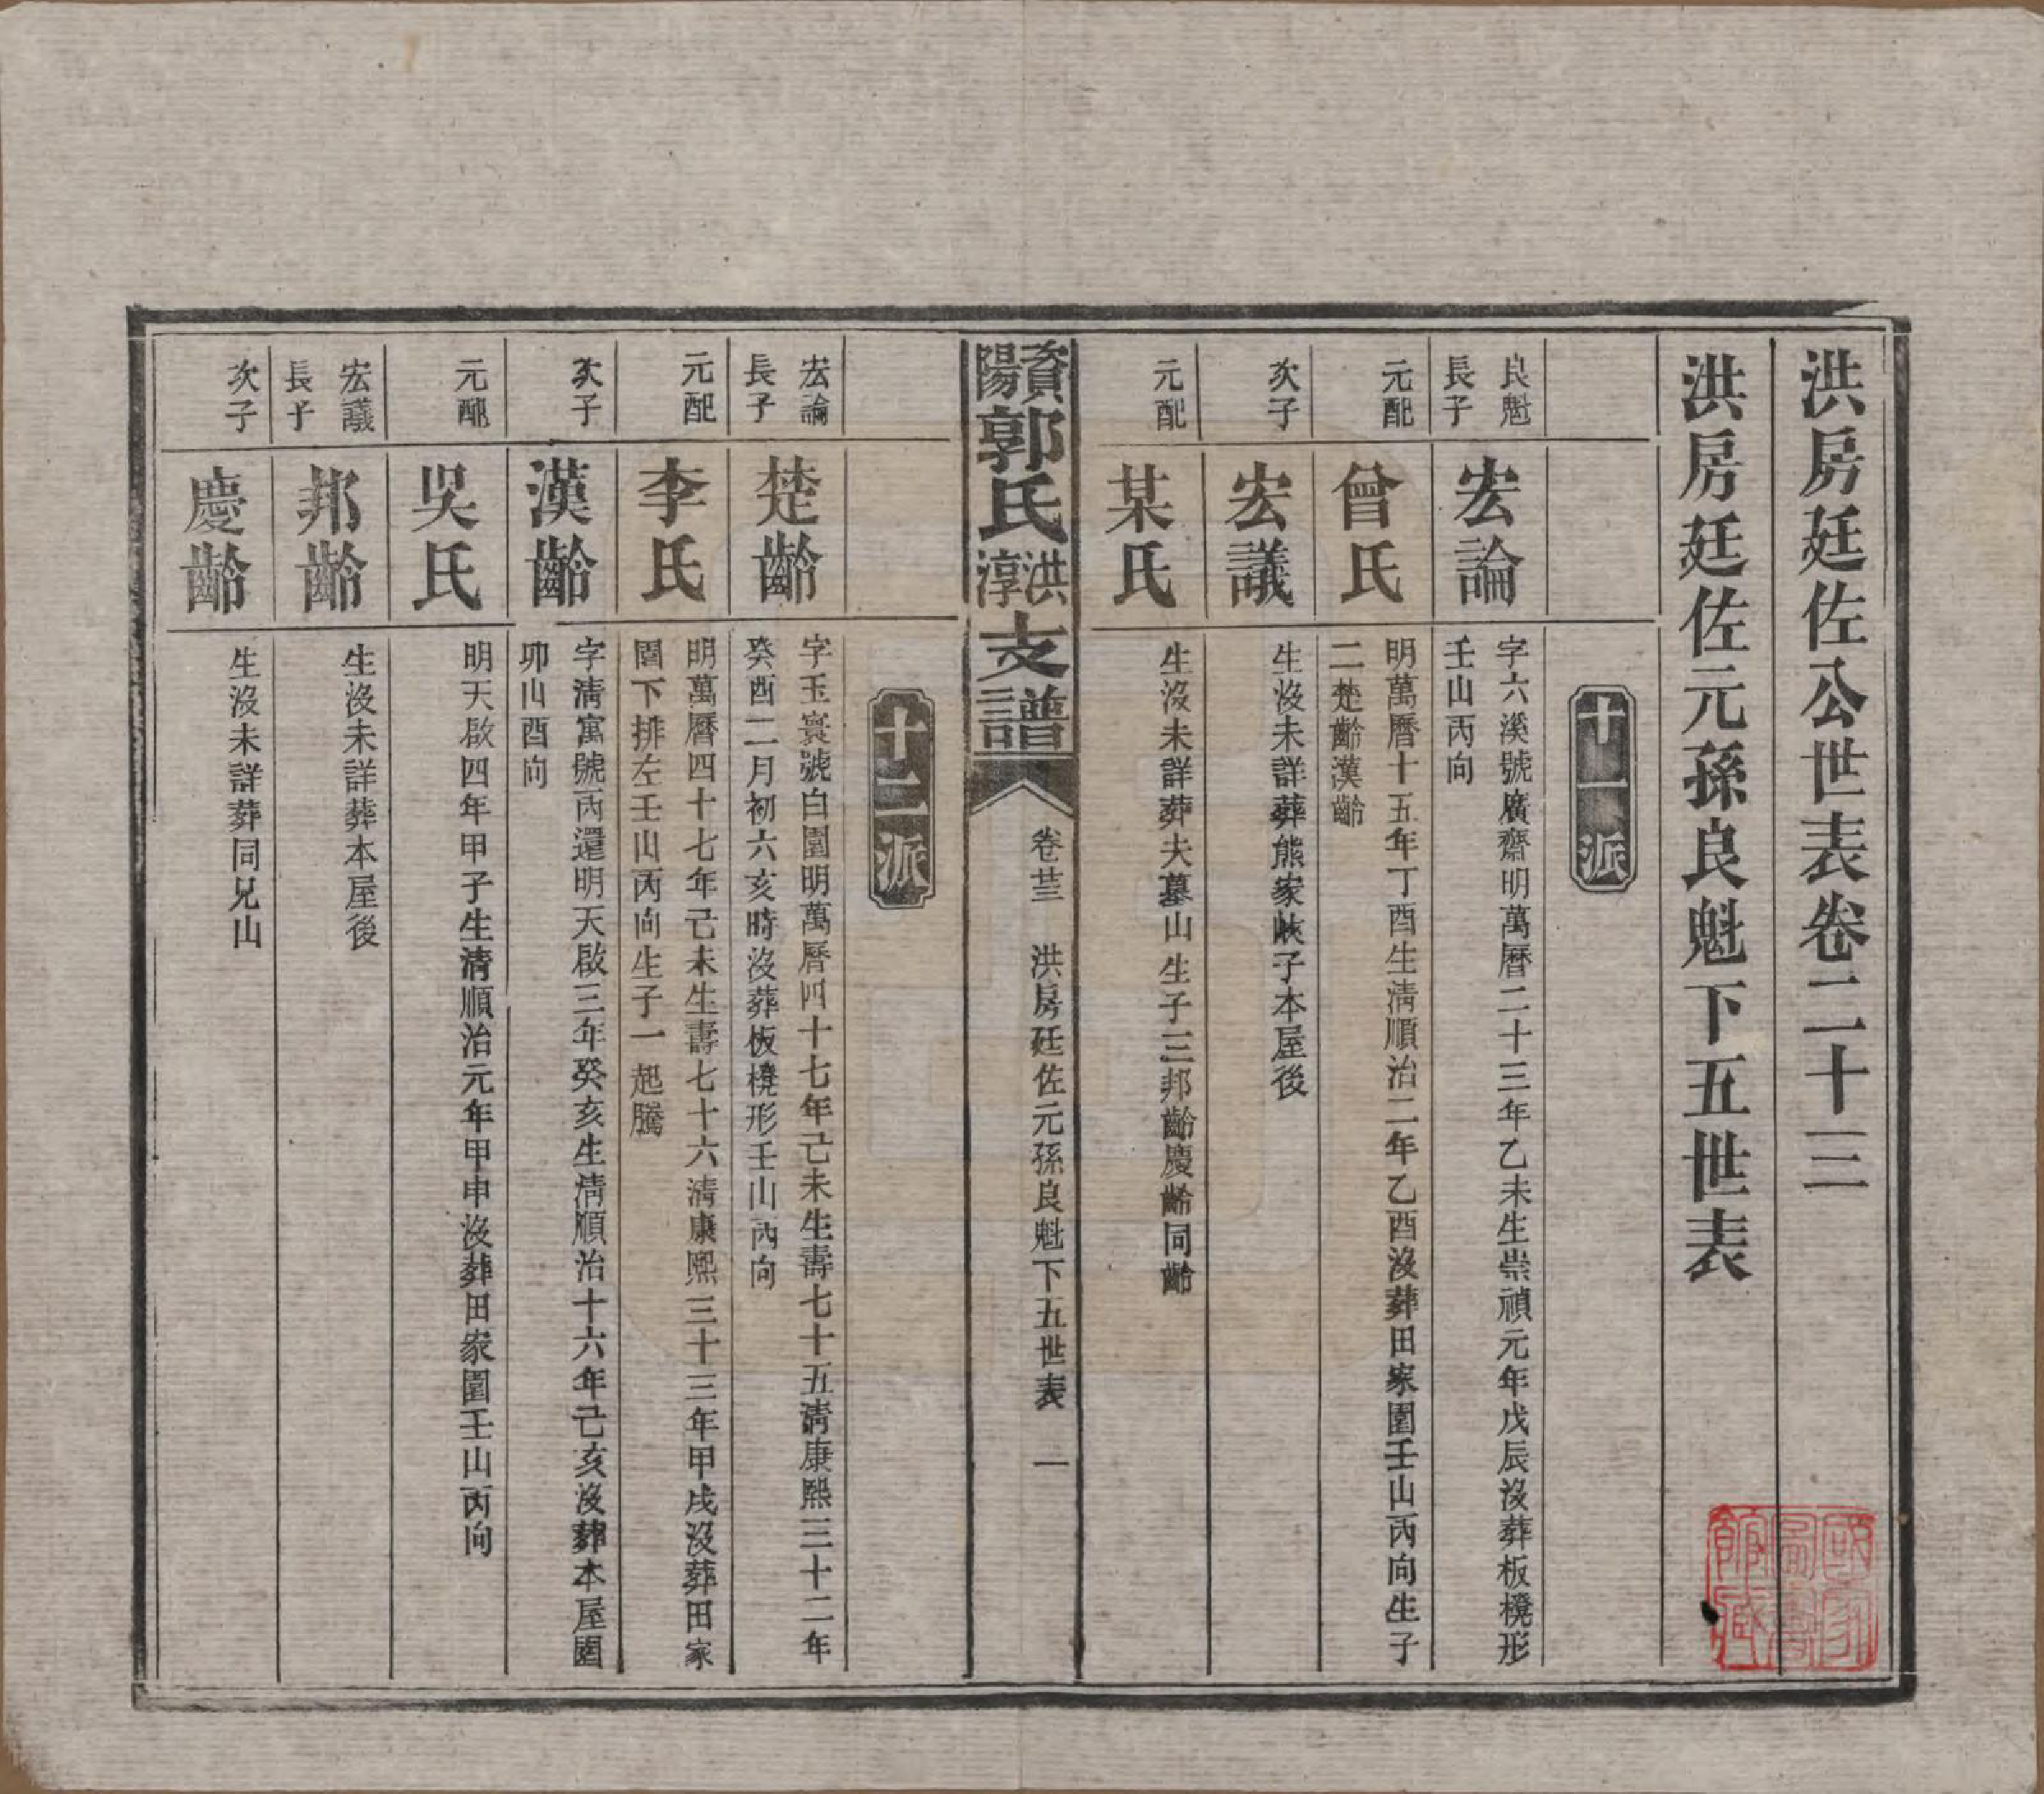 洪房廷佐公世表卷二十三
洪房廷佐元孫良魁下五世表
十一派
良魁
長子
宏論
字六溪號廣齋明萬曆二十三年乙未生崇禎元年戊辰沒葬板櫈形
壬山丙向
元配
曾氏
明萬曆十五年丁酉生清順治二年乙酉沒葬田家園壬山丙向生子
二楚齡漢齡
次子
宏議
生沒未詳葬熊家峽子本屋後
元配
某氏
生沒未詳葬夫墓山生子三邦齡慶齡同齡
資陽郭氏洪淳支譜
卷廿三　洪房廷佐元孫良魁下五世表　一
十二派
宏論
長子
楚齡
字玉寰號白園明萬曆四十七年己未生壽七十五清康熙三十二年
癸酉二月初六亥時沒葬板櫈形壬山丙向
元配
李氏
明萬曆四十七年己未生壽七十六清康熙三十三年甲戌沒葬田家
園下排左壬山丙向生子一起騰
次子
漢齡
字清寓號丙還明天啟三年癸亥生清順治十六年己亥沒葬本屋園
卯山酉向
元配
吳氏
明天啟四年甲子生清順治元年甲申沒葬田家園壬山丙向
宏議
長子
邦齡
生沒未詳葬本屋後
次子
慶齡
生沒未詳葬同兄山
國家
圖書
館藏